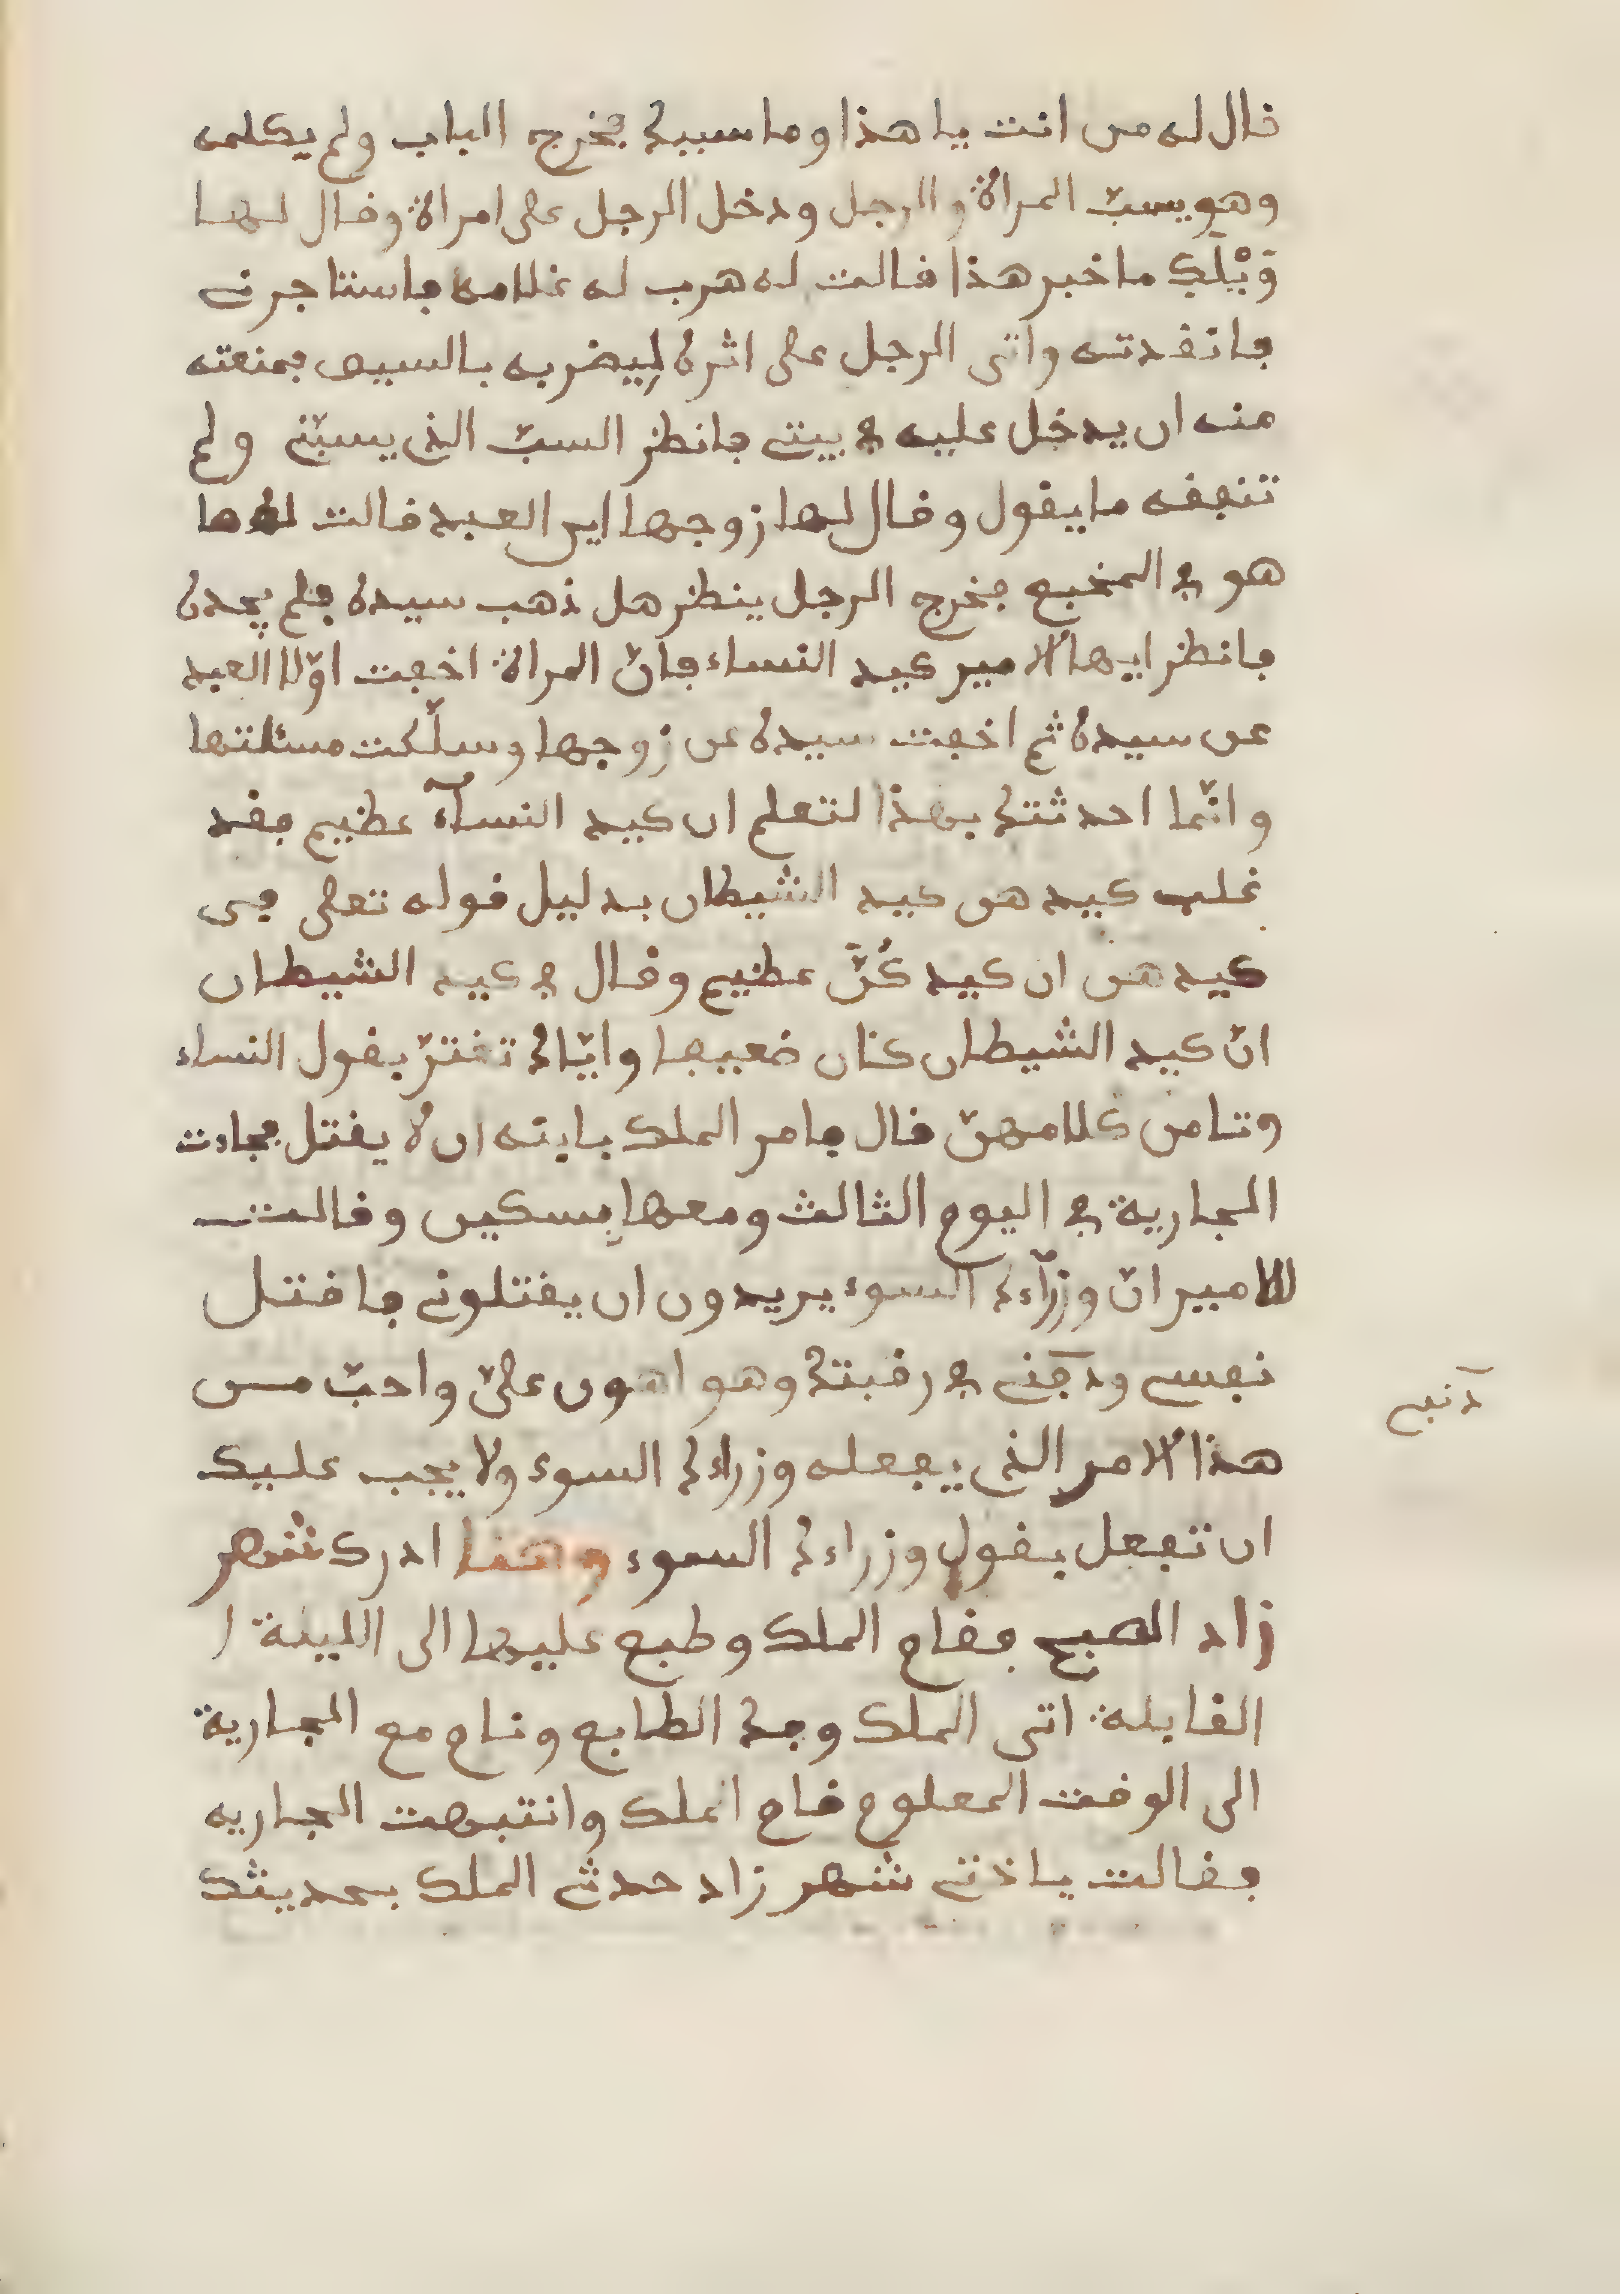 قال له من انت يا هذا وما سببك فخرج الباب ولم يكلمه
وهو يسبّ المراة والرجل ودخل الرجل على امراة وقال لها
وَيْلَكِ ما خبر هذا قالت له هرب له غلامه فاستاجرني
فانقدته واتى الرجل على اثره لِيضربه بالسيف فمنعته
منه ان يدخل عليه في بيتي فانظر السبّ الذي يسبّني ولم
تنفقه ما يقول وقال لها زوجها اين العبد قالت له ها
هو في المخبع فخرج الرجل ينظر هل ذهب سيده فلم يجده
فانظر ايها الامير كيد النساء فانّ المراة اخفت اوّلا العبد
عن سيده ثم اخفت سيده عن زوجها وسلّكت مسئلتها
وانّما احدثتك بهذا لتعلم ان كيد النسآء عظيم فقد
غلب كيدهن كيد الشيطان بدليل قوله تعلى من
كيدهن ان كيدكُنَّ عظيم وقال في كيد الشيطان
انّ كيد الشيطان كان ضعيفا وايّاك تغترّ بقول النساء
وتامن كلامهنّ قال فامر الملك بابنه ان لا يقتل فجاءت
الجارية في اليوم الثالث ومعها بسكين وقالت
للامير انّ وزرآءك السوء يريدون ان يقتلوني فاقتل
نفسي ودمي في رقبتك وهو اهون عليّ واحبّ من
هذا الامر الذي يفعله وزراءك السوء ولا يجب عليك
ان تفعل بقول وزراءك السوء وهنا ادرك شهر
زاد الصبح فقام الملك وطبع عليها الى الليلة
القابلة اتى الملك وفك الطابع ونام مع الجارية
الى الوقت المعلوم قام الملك وانتبهت الجاريه
فقالت ياختي شهر زاد حدثي الملك بحديثك